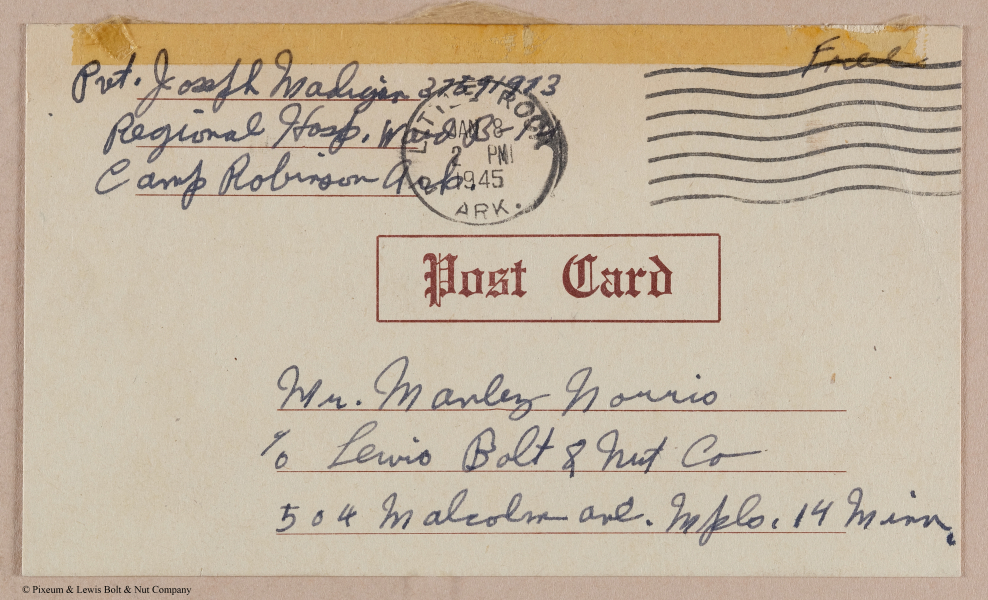 Free
Pvt. Joseph Madigan
Regional Hosp. Ward
Camp Robinson Ark.
LITTLE ROCK
JAN 8
2 PM
1945
ARK.
Post Card
Mr. Manley Norris
% Lewis Bolt & Nut Co
504 Malcolm ave. Mpls. 14 Minn.
© Pixeum & Lewis Bolt & Nut Company